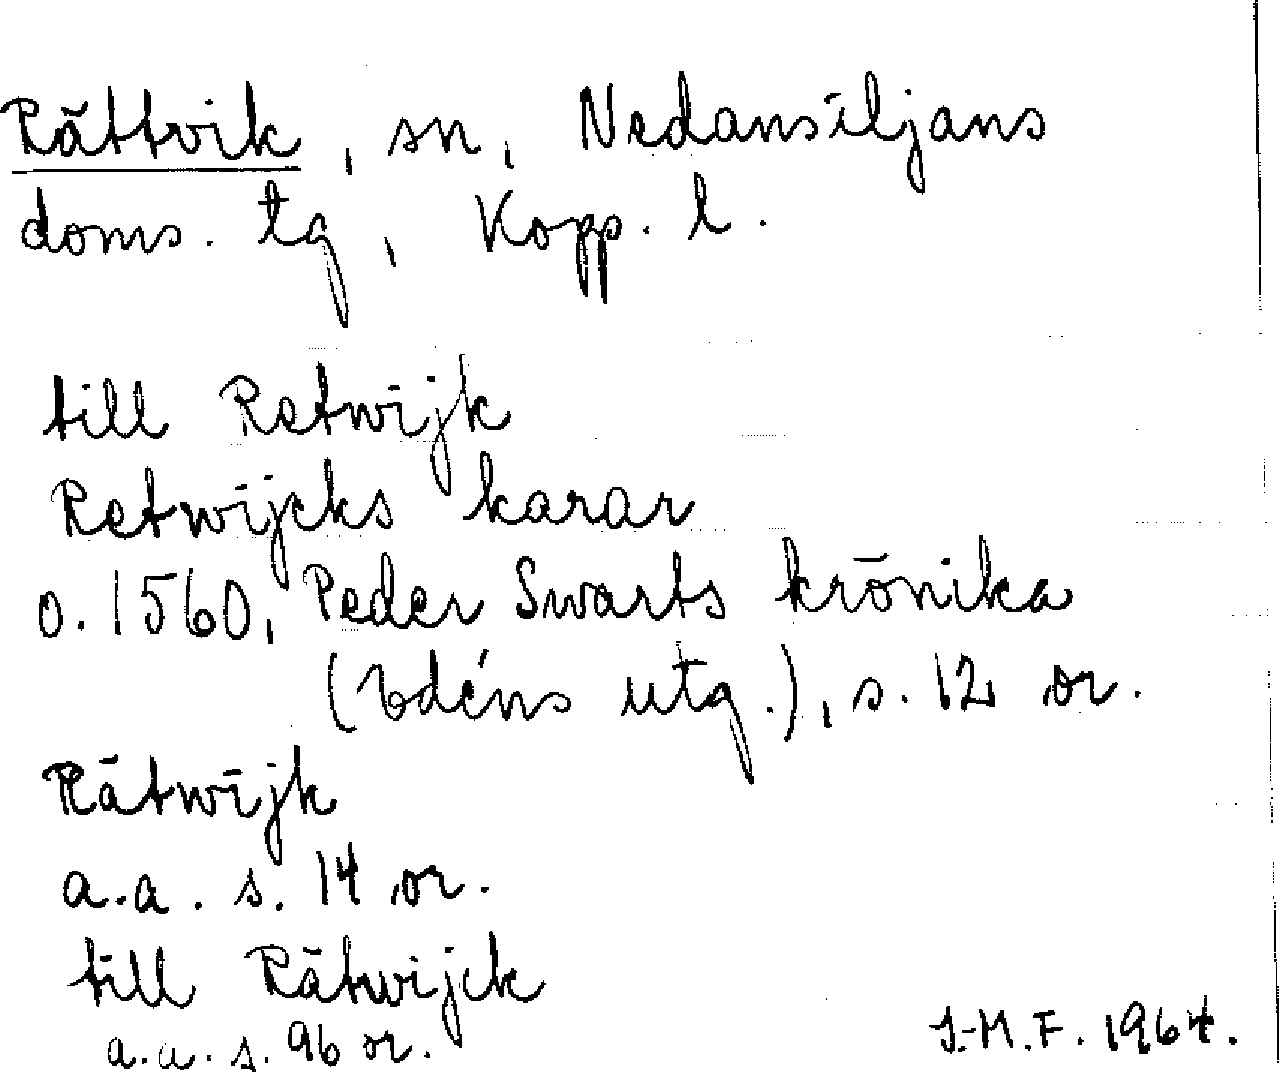 Rättvik, sn, Nedansiljans
doms. tg, Kopp. l.
till Retwijk
Retwijcks karar
o. 1560, Peder Swarts krönika
(Edéns utg.), s. 12 or.
Rätwijk
a.a. s. 14 or.
till Rätwijck
a.a. s. 96 or.
J.-M.F. 1964.